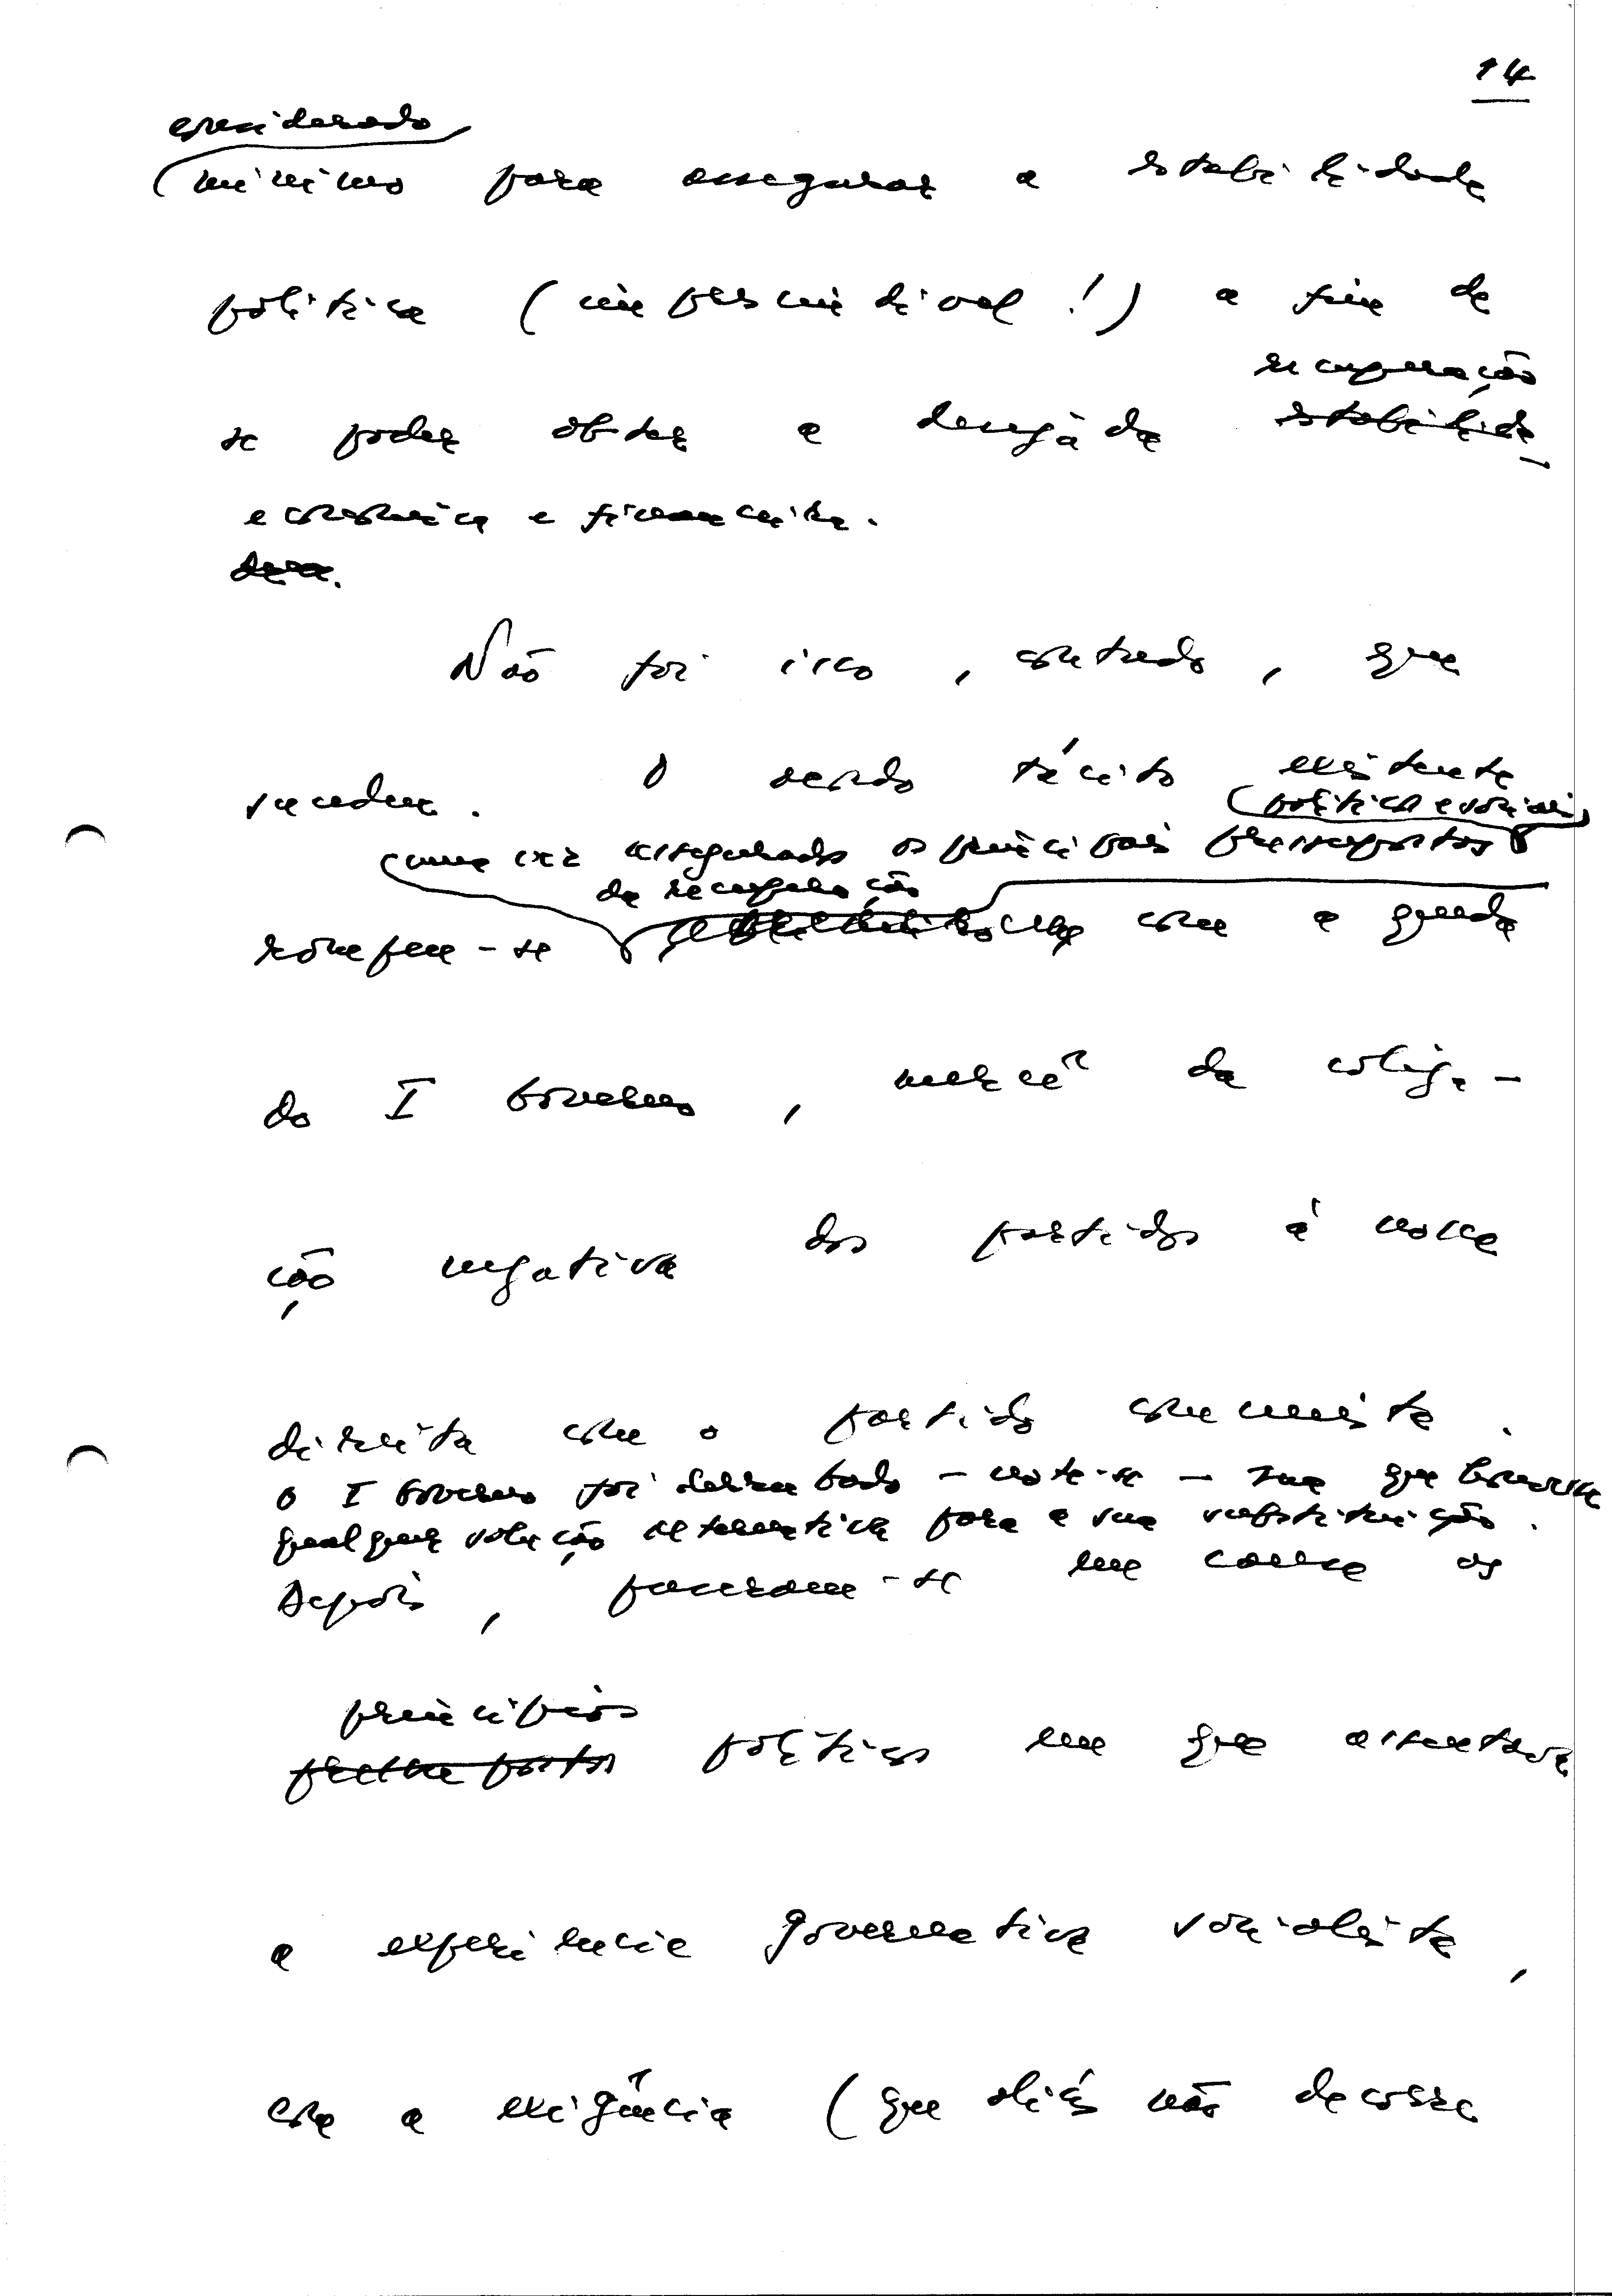 14
considerado
mínimo para assegurar a estabilidade
política (imprescindível!) a fim de
recuperação
se poder obter a desejada estabilida-
económica e financeira.
de.
Não foi isso, contudo, que
sucedeu. O acordo tácito existente
políticos e sociais
uma vez assegurados os principais pressupostos
da recuperação
rompeu-se com a queda
do I Governo, mercê da coliga-
ção negativa dos partidos à nossa
direita com o partido comunista.
O I Governo foi derrubado - note-se - sem que houvesse
qualquer solução alternativa para a sua substituição.
Depois, puseram-se em causa os
princípios
políticos em que assentava
a experiência governativa socialista,
com a exigência (que aliás não decorre